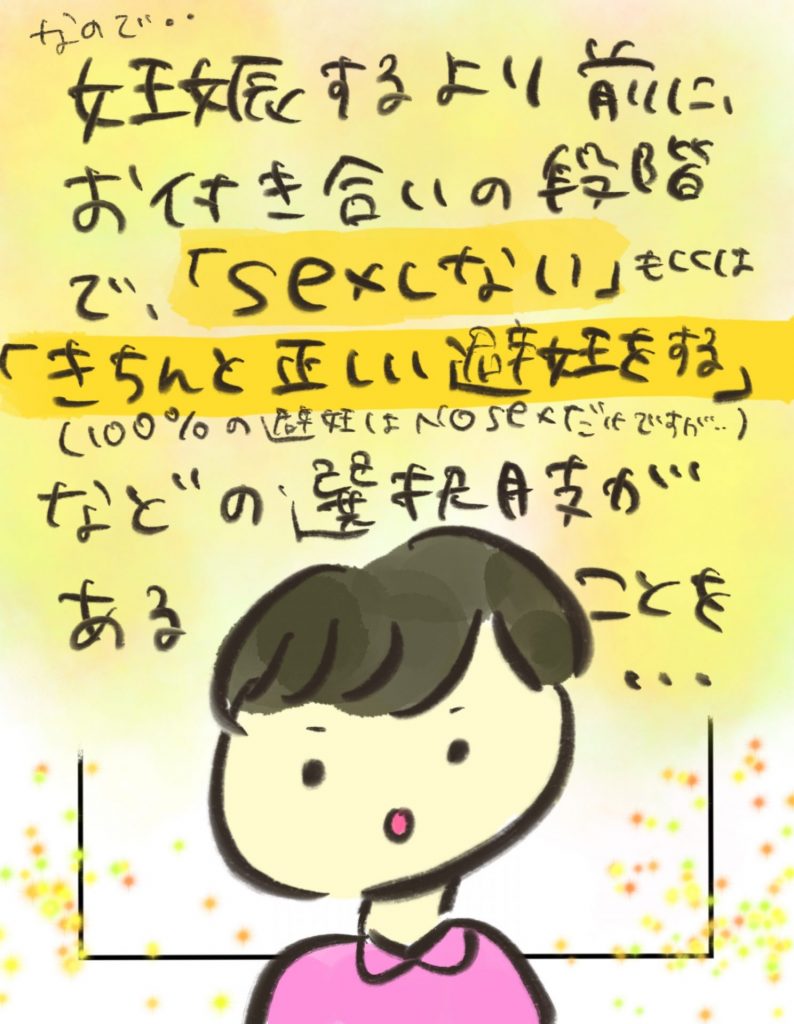 なので‥
妊娠するより前に、
お付き合いの段階
で、「sexしない」もしくは
「きちんと正しい避妊をする」
(100%の避妊はNO sexだけですが‥)
などの選択肢が
あることを
…